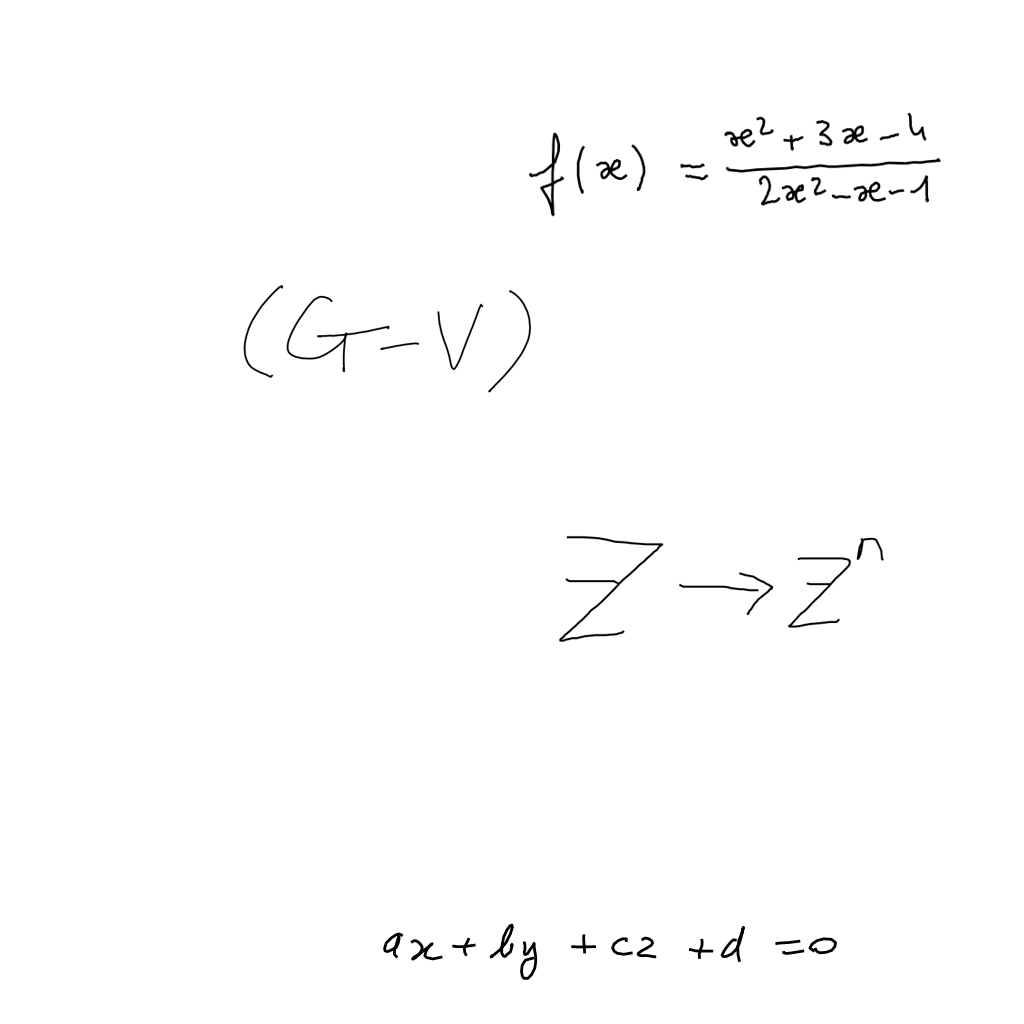 f(x) = \frac{x^2 + 3x - 4}{2x^2 - x - 1}
(G - V)
Z → Z^n
ax + by + cz + d = 0